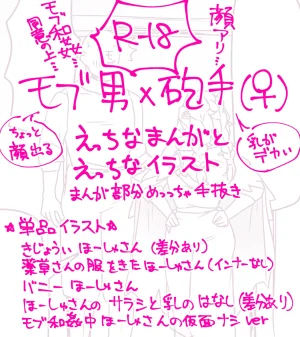 モブ和姦…
同意の上…
R-18
顔アリ…
モブ男×砲手(♀)
ちょっと
顔出る
乳が
デカい
えっちなまんがと
えっちなイラスト
まんが部分めっちゃ手抜き
☆単品イラスト☆
きじょういほーしゅさん(差分あり)
薬草さんの服をきたほーしゅさん(インナーなし)
バニーほーしゅさん
ほーしゅさんのサラシと乳のはなし(差分あり)
モブ和姦中ほーしゅさんの仮面ナシver